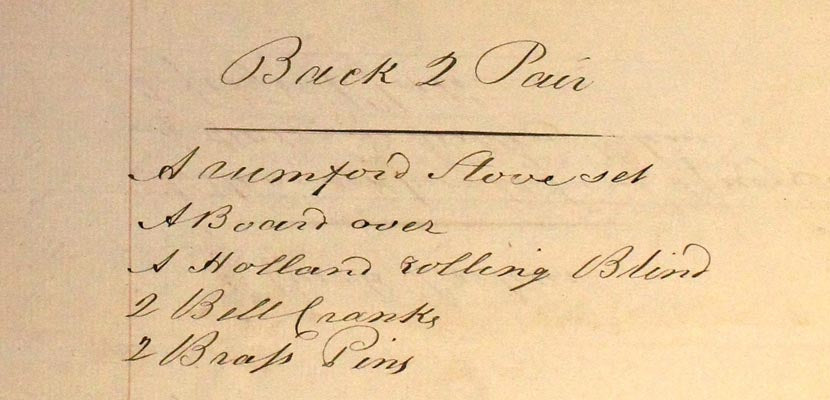 Back 2 Pair
A rumford Stove set
A Board over
A Holland rolling Blind
2 Bell Cranks
2 Braſs Pins